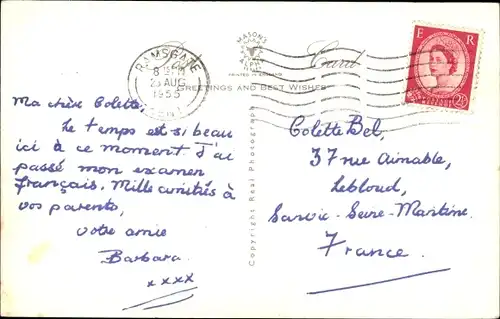 RAMSGATE
8 15 PM
23 AUG
1955
KENT
Post Card
MASON'S
PRINTED IN ENGLAND
GREETINGS AND BEST WISHES
E R
2½D
Copyright Real Photograph
Ma chère Colette,
Le temps est si beau
ici à ce moment. J'ai
passé mon examen
français. Mille amitiés à
vos parents,
votre amie
Barbara
xxxx
Colette Bel,
37 rue Aimable,
Lebloud,
Sanvic-Seine-Maritime
France.